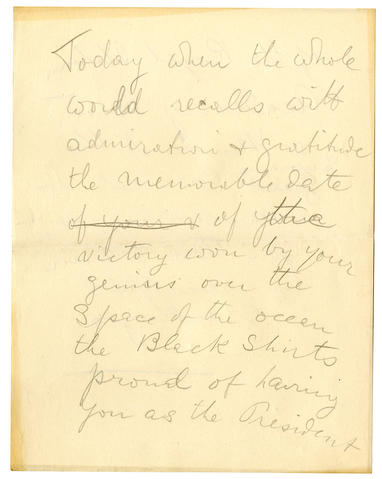 Today when the whole
world recalls with
admiration & gratitude
the memorable date
of your & of the
victory won by your
genius over the
Space of the ocean
the Black Shirts
proud of having
you as the President